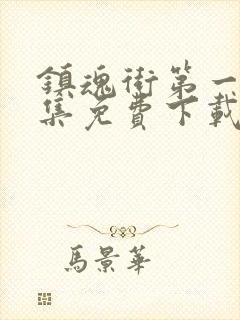 鎮魂街第一
集免費下載
馬景華